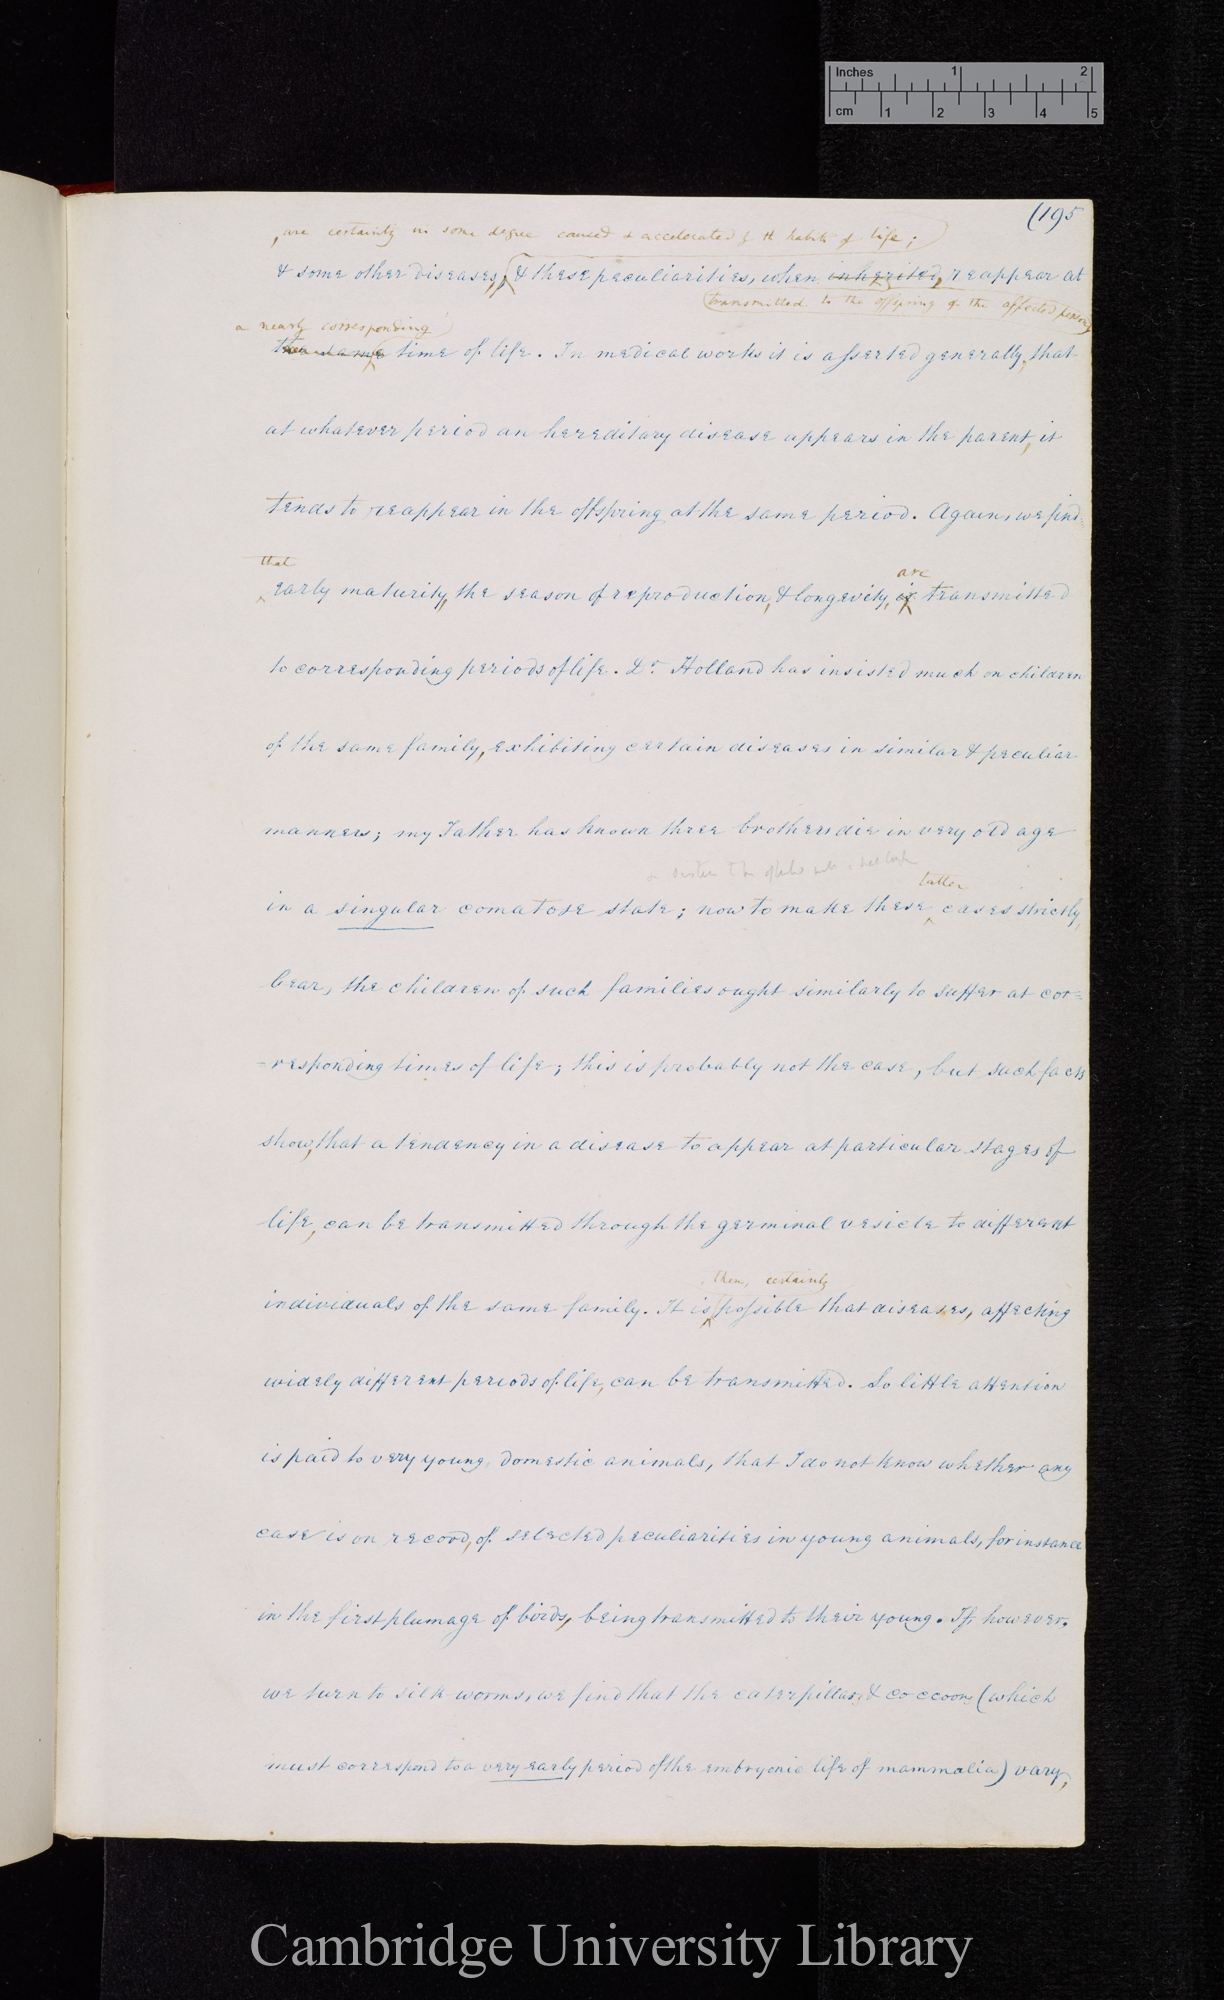 Inches 1 2
cm 1 2 3 4 5
(195
, are certainly in some degree caused & accelerated by th habits of life;
& some other diseases, & these peculiarities, when inherited, reappear at
transmitted to the offspring of the affected person,
a nearly corresponding
the same time of life. In medical works it is asserted generally, that
at whatever period an hereditary disease appears in the parent, it
tends to reappear in the offspring at the same period. Again, we find
that
early maturity, the season of reproduction, & longevity, is transmitted
are
to corresponding periods of life. Dr. Holland has insisted much on children
of the same family, exhibiting certain diseases in similar & peculiar
manners; my Father has known three brothers die in very old age
latter
in a singular comatose state; now to make these cases strictly
bear, the children of such families ought similarly to suffer at cor=
-responding times of life; this is probably not the case, but such facts
show, that a tendency in a disease to appear at particular stages of
life, can be transmitted through the germinal vesicle to different
then, certainly
individuals of the same family. It is possible that diseases, affecting
widely different periods of life, can be transmitted. So little attention
is paid to very young domestic animals, that I do not know whether any
case is on record, of selected peculiarities in young animals, for instance
in the first plumage of birds, being transmitted to their young. If, however,
we turn to silk-worms, we find that the caterpillars, & coccoons (which
must correspond to a very early period of the embryonic life of mammalia) vary,
Cambridge University Library